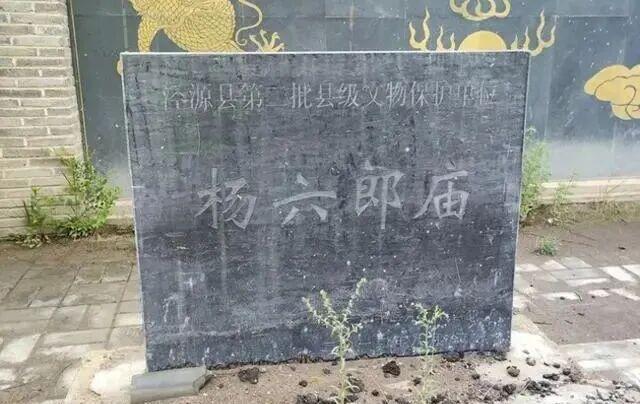 泾源县第二批县级文物保护单位
杨六郎庙